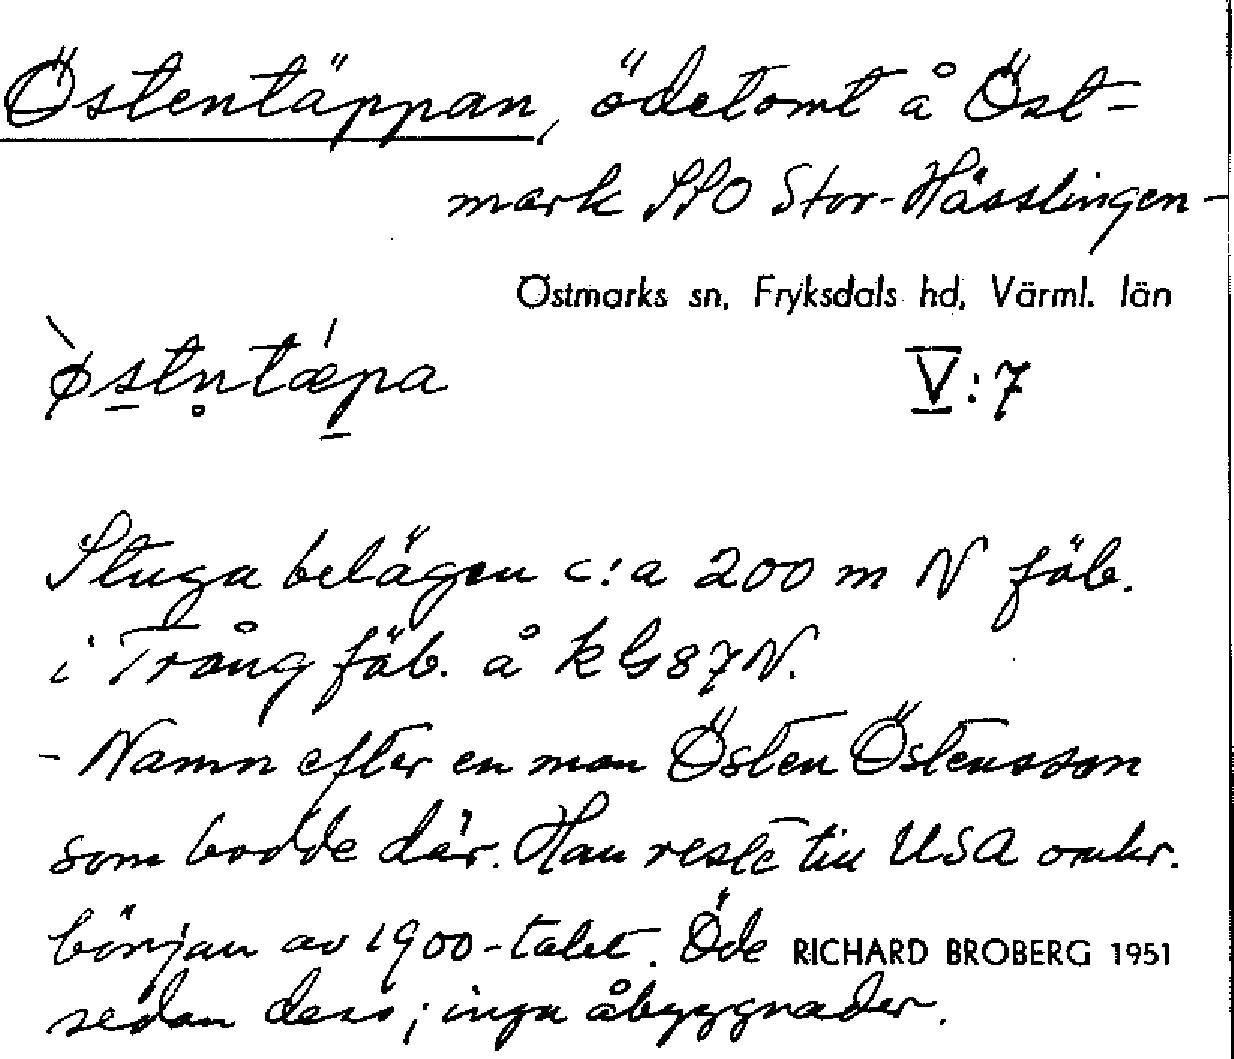 Östentäppan, ödetomt å Öst=
mark SSO Stor-Hässlingen -
Östmarks sn, Fryksdals hd, Värml. län
V:7
Stuga belägen c:a 200 m N fäb.
i Trång fäb. å k G 87 N.
- Namn efter en man Östen Östensson
som bodde där. Han reste till USA omkr.
början av 1900-talet. Öde
RICHARD BROBERG 1951
sedan dess; inga åbyggnader.